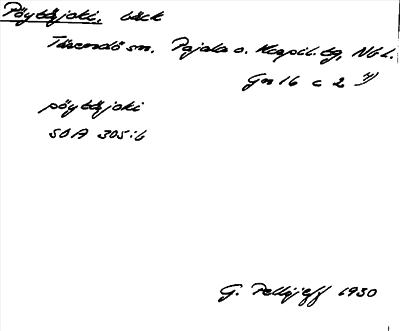 Pöytäjoki, bäck
Tärendö sn. Pajala o. Korpil. tg, Nbl.
Gn 16 c 2
pöytäjoki
SOA 305:6
G. Pellijeff 1930